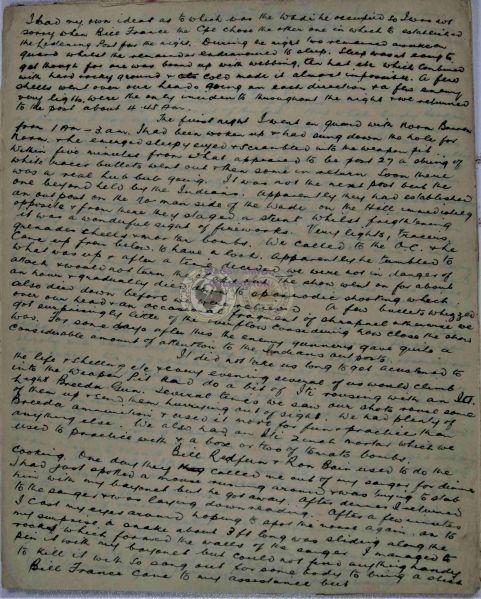 I had my own ideas as to which was the Wadi he occupied so I was not
sorry when Bill France the Cpl chose the other one in which to established
the Listening Post for the night. During the night two remained awake on
guard whilst the remainder endeavoured to sleep. Sleep wasn't easy to
get though for one was bound up with webbing, tin hat etc which combined
with hard rocky ground & the cold made it almost impossible. A few
shells went over our heads going in each direction & a few enemy
very lights were the only incidents throughout the night & we returned
to the post about 4.45 Am.
The first night I went on guard with Norm
from 1 Am – 3 am. I had been woken up & had swung down the hole for
Norm. He emerged sleepy eyed & scrambled into the weapon pit.
Within five minutes from what appeared to be post 27 a string of
white tracer bullets went out then some in return. Soon there
was a real hub bub going. It was not the next post but the
one beyond held by the Indians. Apparently they had established
an outpost on the 10 man side of the Wadi on the hill immediately
opposite & from here they staged a stunt whilst frightening
it was a wonderful sight of fireworks. Very lights, tracers,
grenades shells & mortar bombs. We called to the O.C. & he
came up from below to have a look. Apparently he tumbled to
what was up & after a time we were not in danger of
attack & would not turn the show went on for about
an hour & gradually died spasmodic shooting which
also died down before I was relieved. A few bullets whizzed
over our heads & an occasional fragment of shrapnel otherwise we
got surprisingly little of the overflow considering how close the show
was. For some days after this the enemy gunners gave quite a
considerable amount of attention to the Indians out posts.
It did not take us long to get accustomed to
the life & shelling etc & every evening several of us would climb
into the Weapon Pit and do a bit of Ite rousing with an Ite.
Light Breda Gun. Several times we saw our shots rouse some
of them up & send them scurrying out of sight. We had plenty of
Breda ammunition & used it more for fun & practice than
anything else. We also had an Ite 2 inch mortar which we
used to practice with & a box or two of tomato bombs.
Bill Redfern & Ron Bain used to do the
cooking. One day they called me out of my sangar for dinner
I had just spotted a mouse running around & was trying to stab
him with my bayonet but he got away. After dinner I returned
to the sangar & was laying down reading. After a few minutes
I cast my eyes around hoping to spot the mouse again. and to
my surprise a snake about 3 ft long was sliding along the
rocks which formed the walls of the sangar. I managed to
pin it with my bayonet but could not find anything handy
to kill it with so sang out for somebody to bring a stick
Bill France came to my assistance but